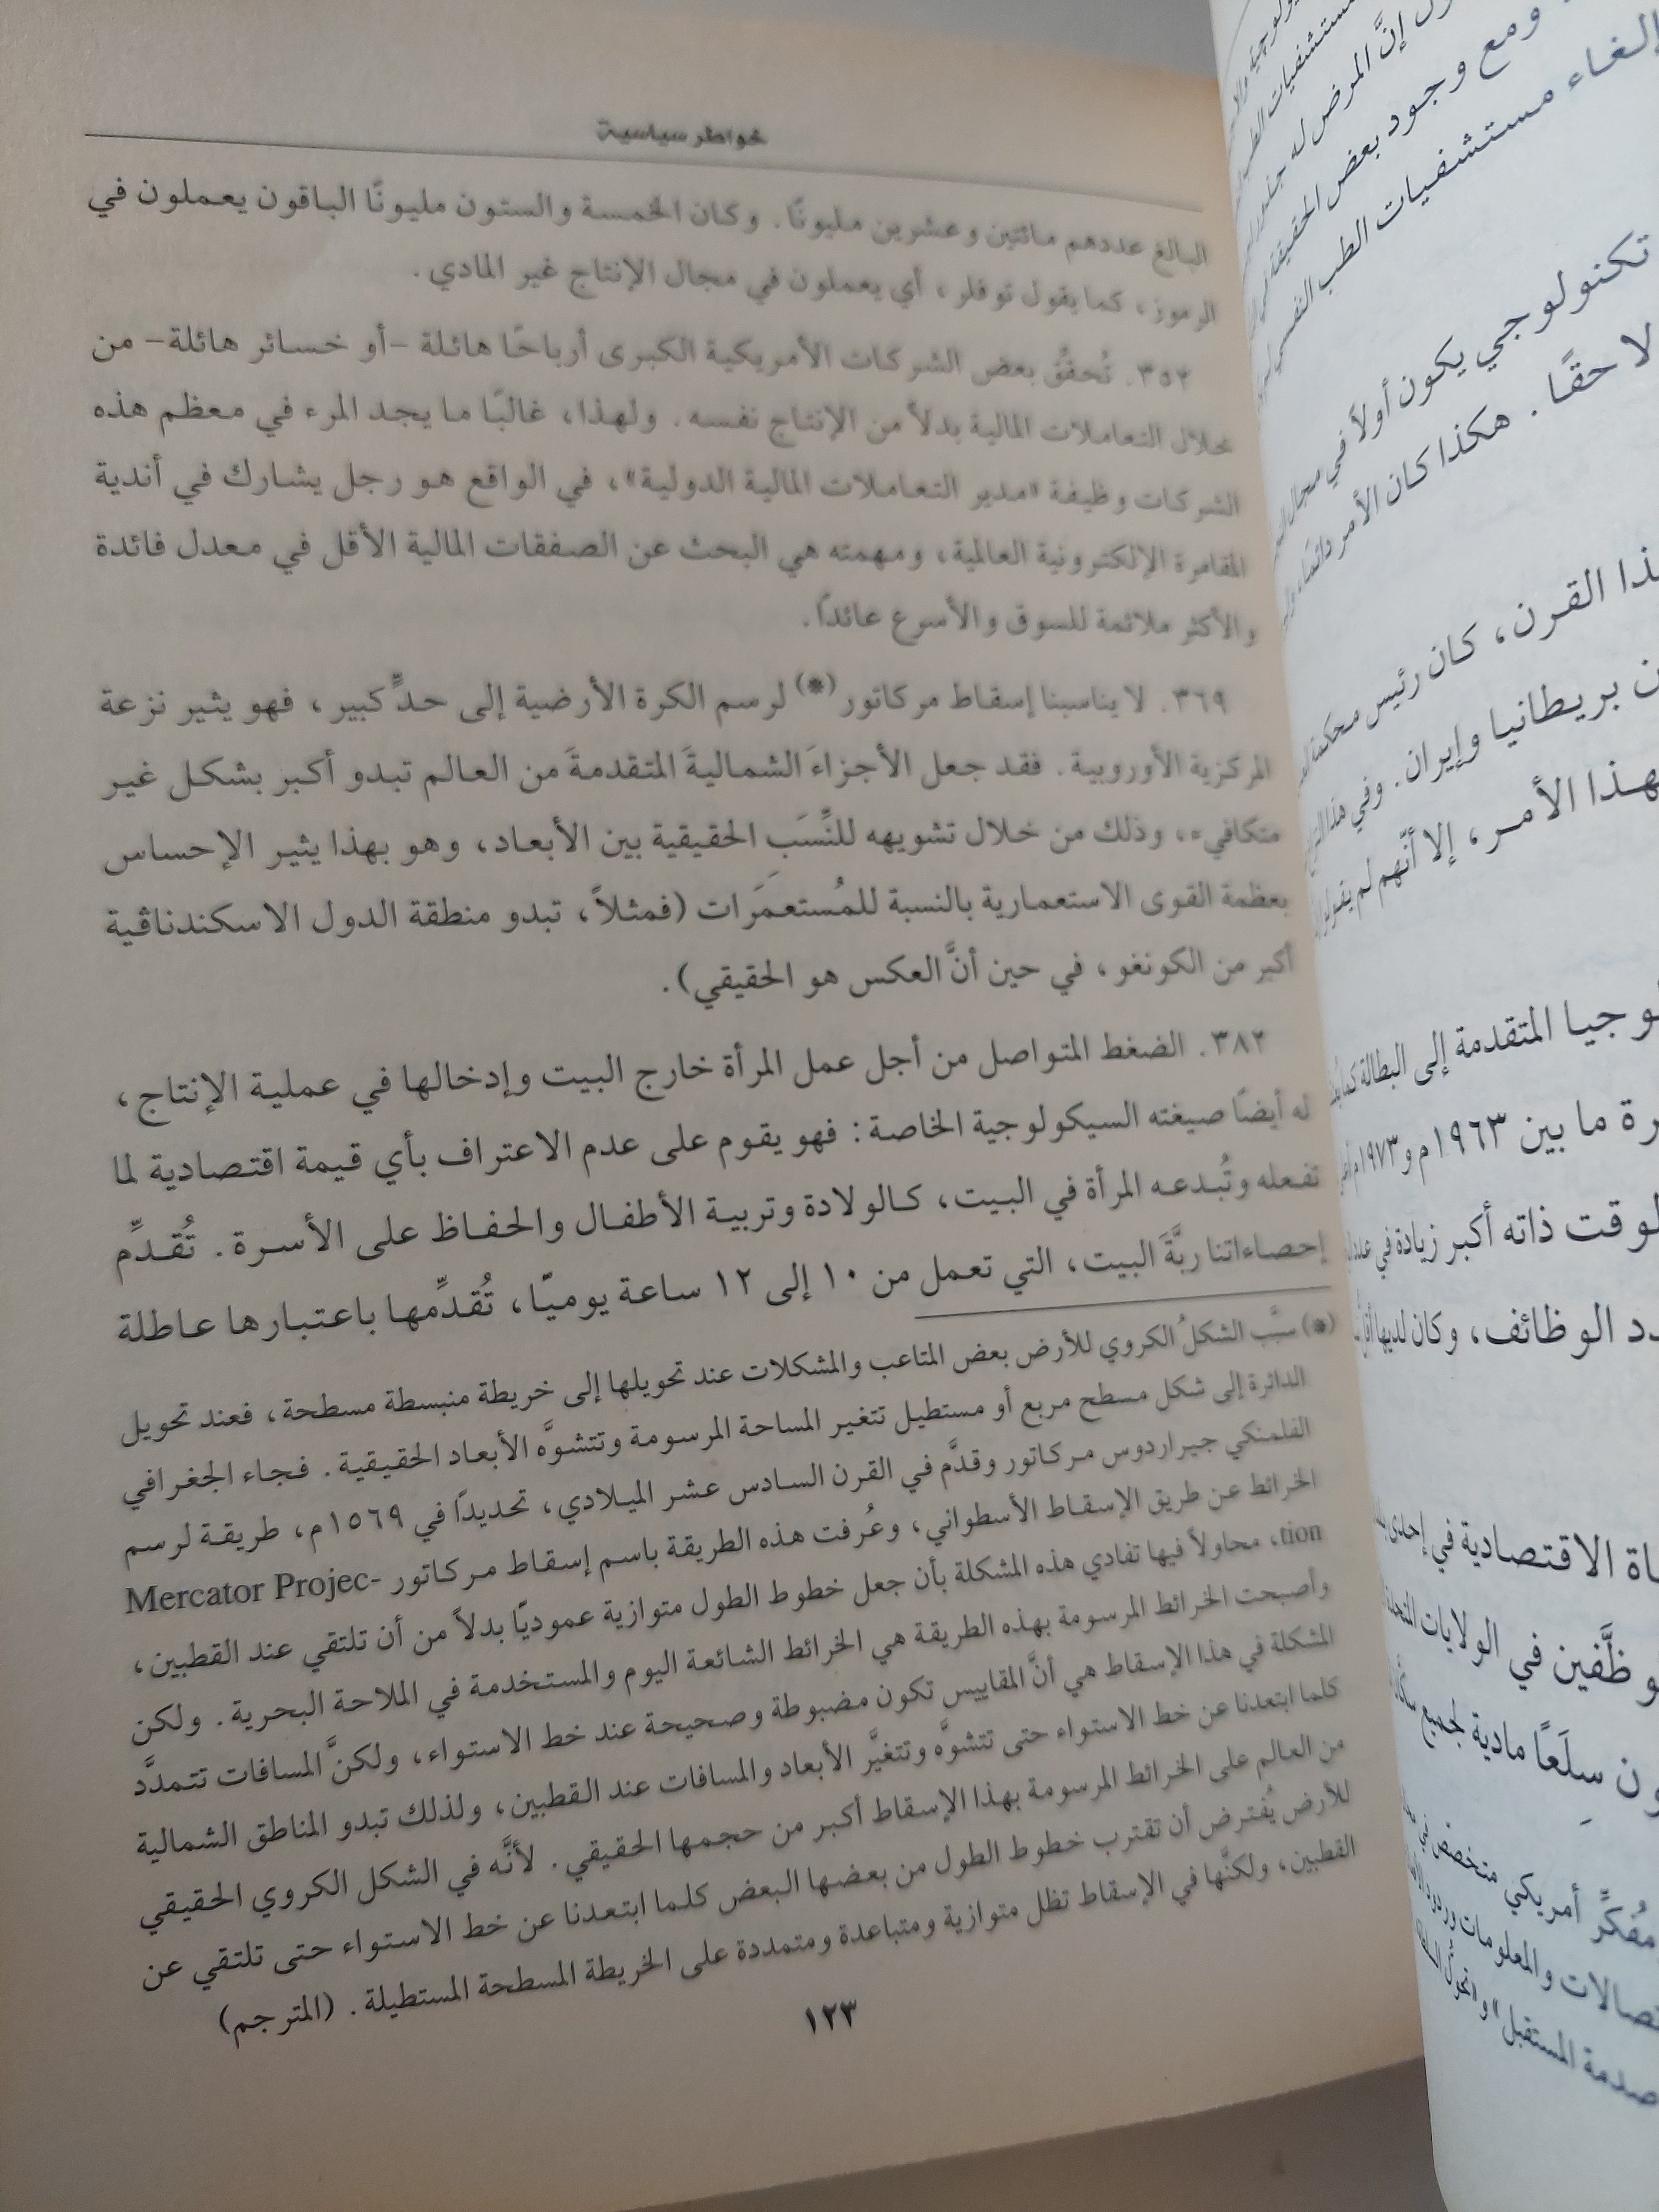 خواطر سياسية
البالغ عددهم مائتين وعشرين مليونًا. وكان الخمسة والستون مليونًا الباقون يعملون في
الرموز، كما يقول توفلر، أي يعملون في مجال الإنتاج غير المادي.
٣٥٢. تُحقِّقُ بعض الشركات الأمريكية الكبرى أرباحًا هائلة -أو خسائر هائلة- من
خلال التعاملات المالية بدلاً من الإنتاج نفسه. ولهذا، غالبًا ما يجد المرء في معظم هذه
الشركات وظيفة «مدير التعاملات المالية الدولية»، في الواقع هو رجل يشارك في أندية
المقامرة الإلكترونية العالمية، ومهمته هي البحث عن الصفقات المالية الأقل في معدل فائدة
والأكثر ملائمة للسوق والأسرع عائدًا.
٣٦٩. لا يناسبنا إسقاط مركاتور(*) لرسم الكرة الأرضية إلى حدٍّ كبير، فهو يثير نزعة
المركزية الأوروبية. فقد جعل الأجزاءَ الشماليةَ المتقدمةَ من العالم تبدو أكبر بشكل غير
متكافيء، وذلك من خلال تشويهه للنِّسَبِ الحقيقية بين الأبعاد، وهو بهذا يثير الإحساس
بعظمة القوى الاستعمارية بالنسبة للمُستعمَرات (فمثلاً، تبدو منطقة الدول الاسكندناڤية
أكبر من الكونغو، في حين أنَّ العكس هو الحقيقي).
٣٨٢. الضغط المتواصل من أجل عمل المرأة خارج البيت وإدخالها في عملية الإنتاج،
له أيضًا صيغته السيكولوجية الخاصة: فهو يقوم على عدم الاعتراف بأي قيمة اقتصادية لما
تفعله وتُبدعه المرأة في البيت، كالولادة وتربية الأطفال والحفاظ على الأسرة. تُقدِّم
إحصاءاتنا ربَّةَ البيت، التي تعمل من ١٠ إلى ١٢ ساعة يوميّا، تُقدِّمها باعتبارها عاطلة
(*) سبَّب الشكلُ الكروي للأرض بعض المتاعب والمشكلات عند تحويلها إلى خريطة منبسطة مسطحة، فعند تحويل
الدائرة إلى شكل مسطح مربع أو مستطيل تتغير المساحة المرسومة وتتشوَّه الأبعاد الحقيقية. فجاء الجغرافي
الفلمنكي جيراردوس مركاتور وقدَّم في القرن السادس عشر الميلادي، تحديدًا في ١٥٦٩م، طريقة لرسم
الخرائط عن طريق الإسقاط الأسطواني، وعُرفت هذه الطريقة باسم إسقاط مركاتور Mercator Projec-
tion، محاولاً فيها تفادي هذه المشكلة بأن جعل خطوط الطول متوازية عموديًا بدلاً من أن تلتقي عند القطبين،
وأصبحت الخرائط المرسومة بهذه الطريقة هي الخرائط الشائعة اليوم والمستخدمة في الملاحة البحرية. ولكن
المشكلة في هذا الإسقاط هي أنَّ المقاييس تكون مضبوطة وصحيحة عند خط الاستواء، ولكنَّ المسافات تتمدَّد
كلما ابتعدنا عن خط الاستواء حتى تتشوَّه وتتغيَّر الأبعاد والمسافات عند القطبين، ولذلك تبدو المناطق الشمالية
من العالم على الخرائط المرسومة بهذا الإسقاط أكبر من حجمها الحقيقي. لأنَّه في الشكل الكروي الحقيقي
للأرض يُفترض أن تقترب خطوط الطول من بعضها البعض كلما ابتعدنا عن خط الاستواء حتى تلتقي عن
القطبين، ولكنَّها في الإسقاط تظل متوازية ومتباعدة ومتمددة على الخريطة المسطحة المستطيلة. (المترجم)
١٢٣
إنَّ المرض له
ومع وجود بعض الحقيقة
إلغاء مستشفيات الطب النفسي
تكنولوجي يكون أولاً في مجال
لاحقًا. هكذا كان الأمر دائمًا،
القرن، كان رئيس محكمة
بريطانيا وإيران. وفي هذا
الأمر، إلا أنّهم لم يقولوا
المتقدمة إلى البطالة
ما بين ١٩٦٣م و١٩٧٣م
ذاته أكبر زيادة في
الوظائف، وكان لديها
الاقتصادية في إحدى
في الولايات المتحدة
سِلَعًا مادية لجميع
مُفكِّر أمريكي متخصص في
والمعلومات
صدمة المستقبل» و«تحوّل